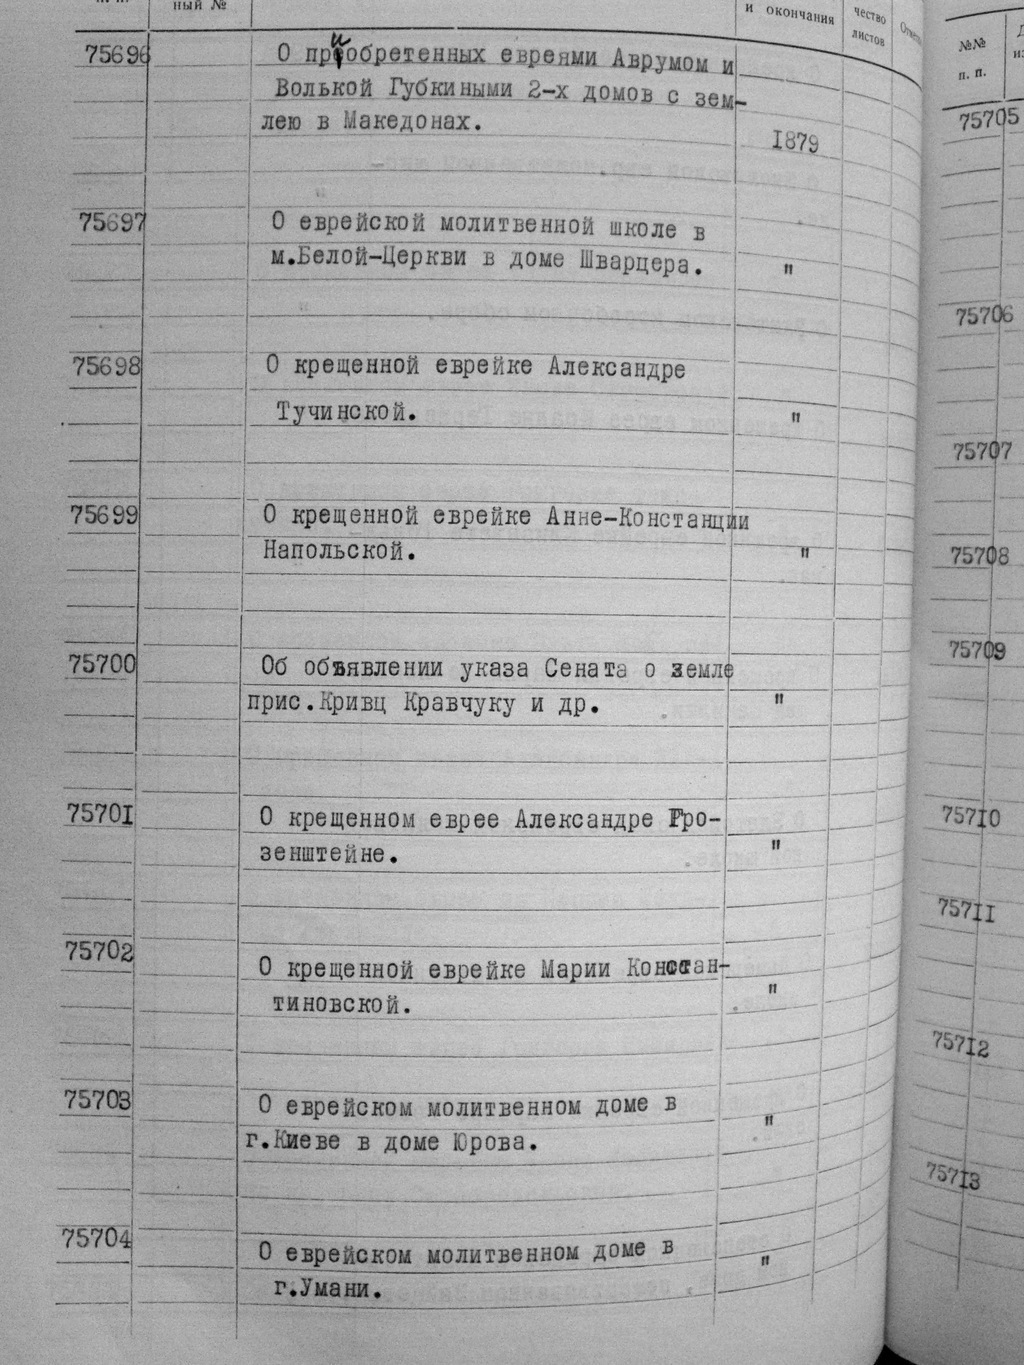 ный №
и окончания
чество
листов
75696
О приобретенных евреями Аврумом и
Волькой Губкиными 2-х домов с зем-
лею в Македонах.
1879
75697
О еврейской молитвенной школе в
м.Белой-Церкви в доме Шварцера.
"
75698
О крещенной еврейке Александре
Тучинской.
"
75699
О крещенной еврейке Анне-Констанции
Напольской.
"
75700
Об объявлении указа Сената о земле
прис.Кривц Кравчуку и др.
"
75701
О крещенном еврее Александре Гро-
зенштейне.
"
75702
О крещенной еврейке Марии Констан-
тиновской.
"
75703
О еврейском молитвенном доме в
г.Киеве в доме Юрова.
"
75704
О еврейском молитвенном доме в
г.Умани.
"
№№
п. п.
75705
75706
75707
75708
75709
75710
75711
75712
75713